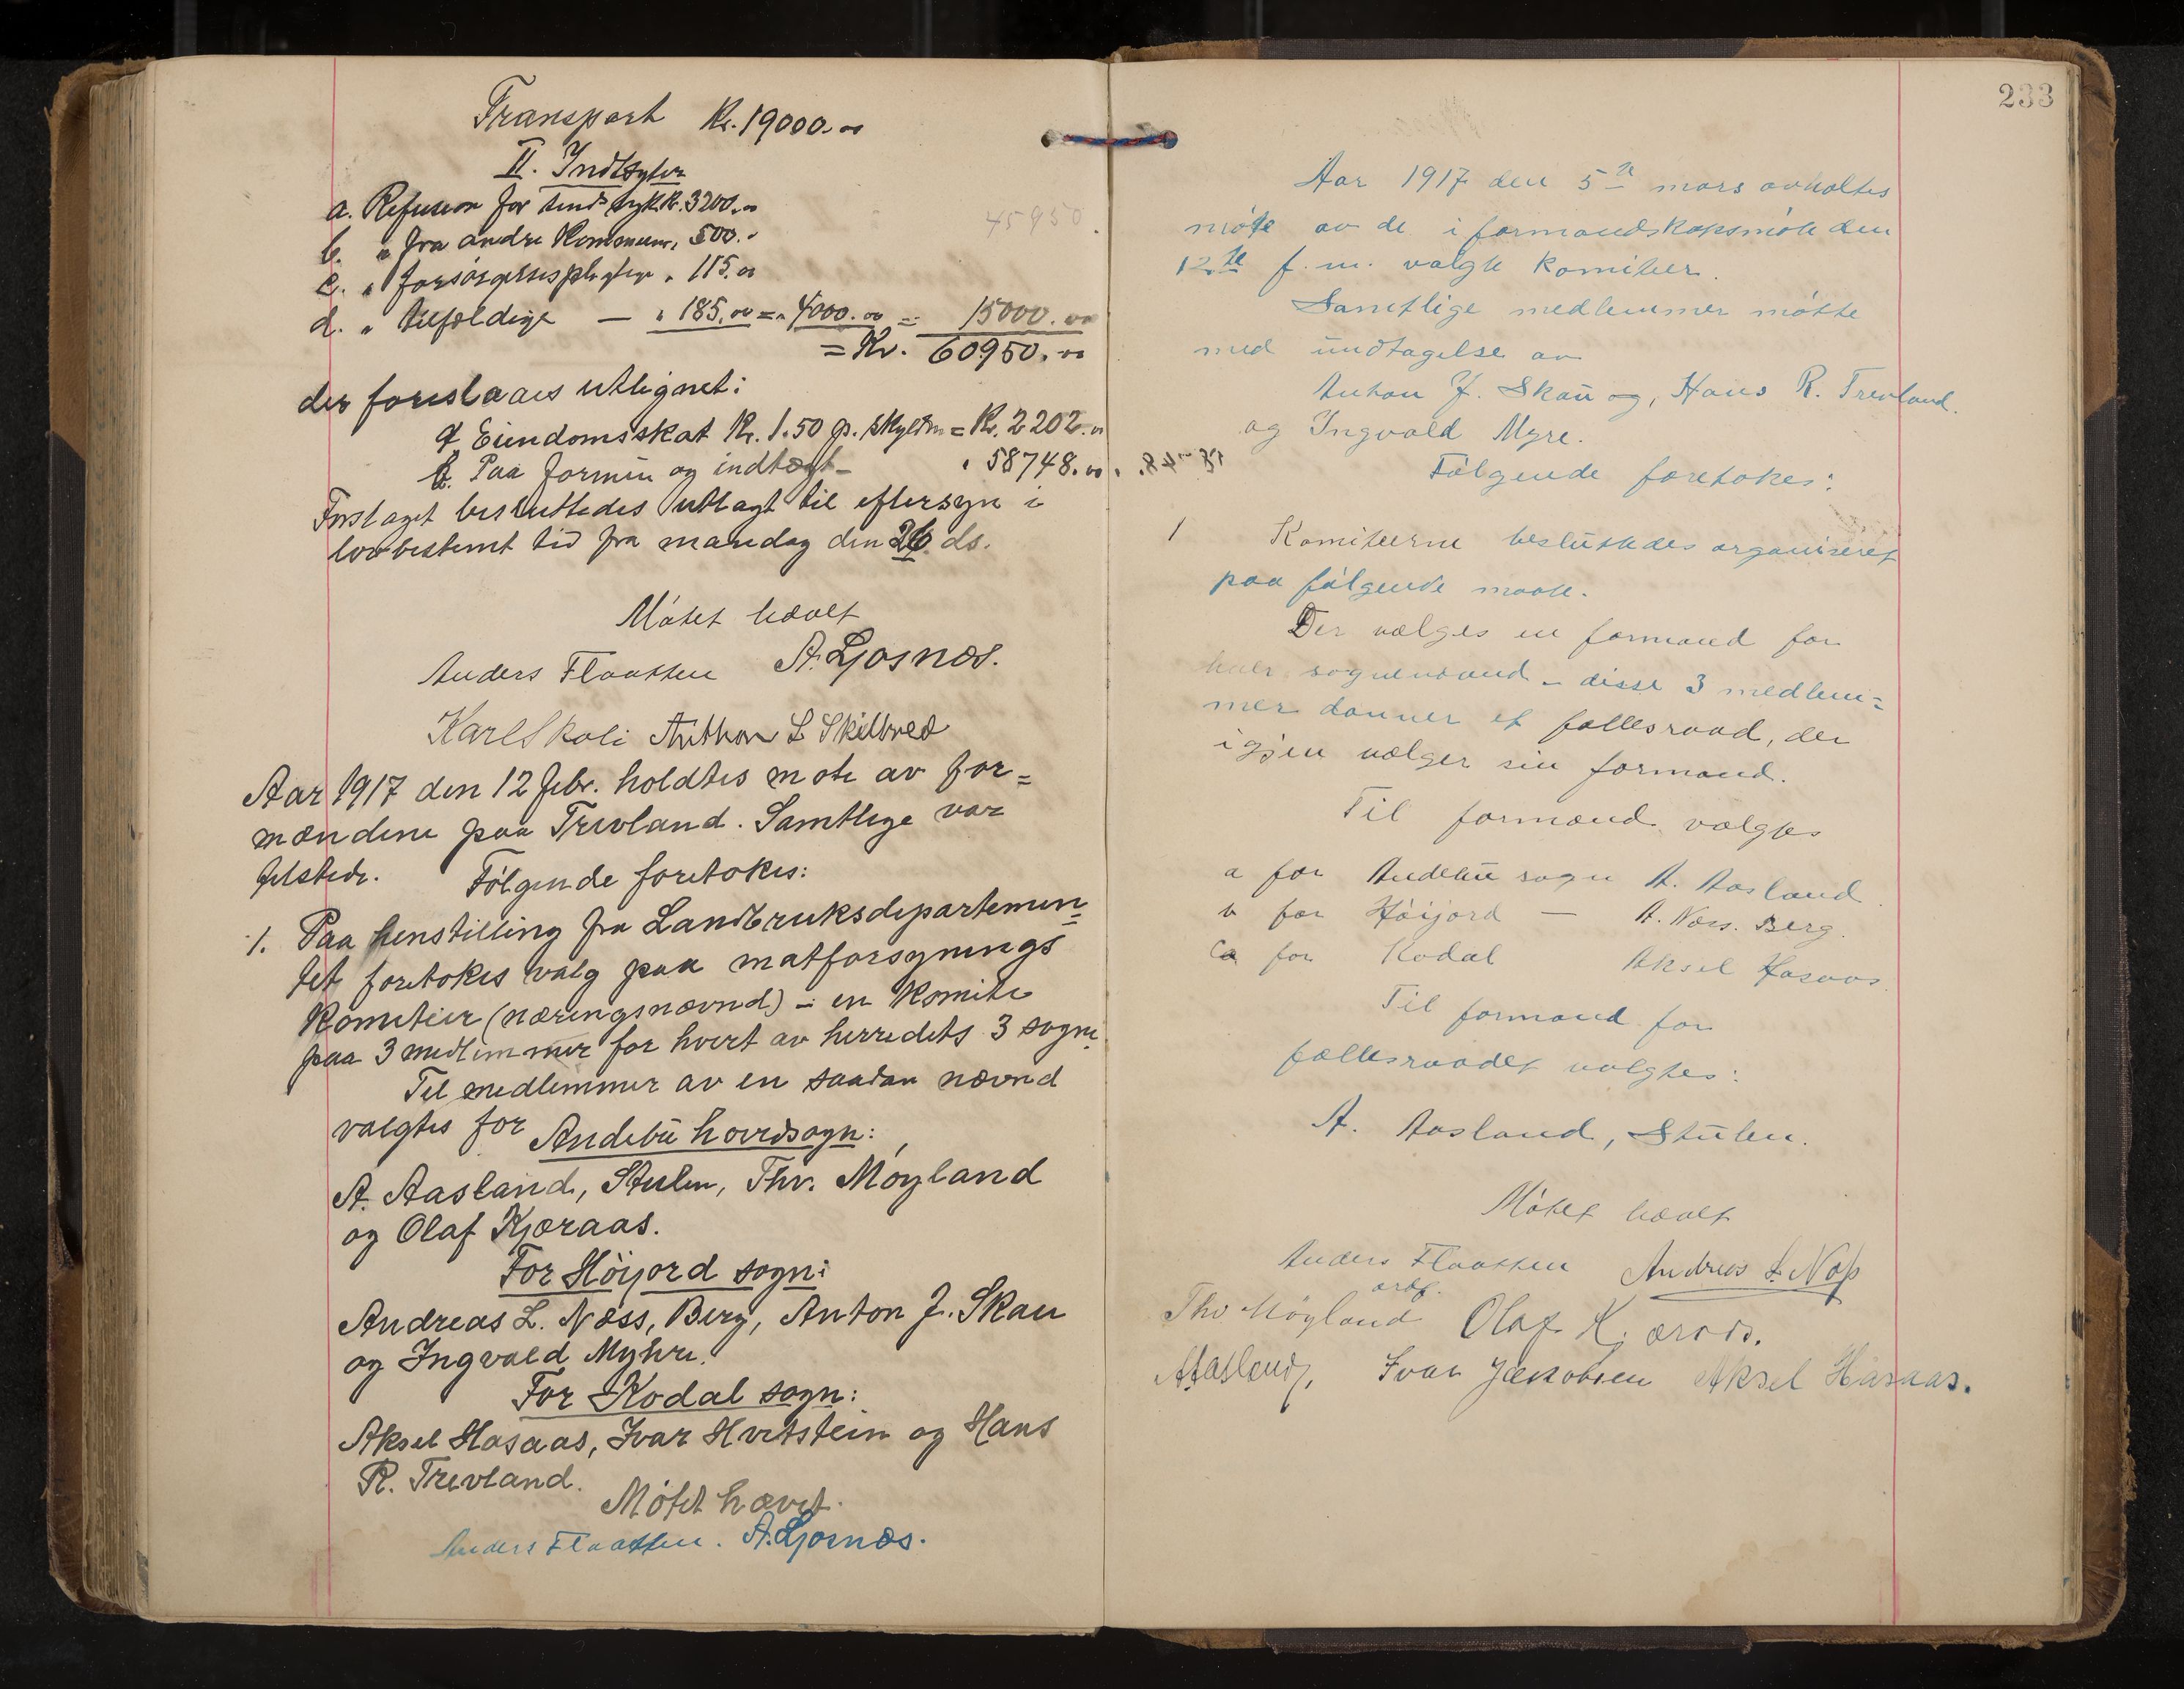 Transport Kr. 19000.00
II. Indtægter
a. Refusion for sinds syk Kr. 3200.00
45950
b. " fra andre Kommun. 500.-
c. " forsörgelsespligtige " 115.00
d. " tilfældige — " 185.00 = " 4000.00 = 15000.00
= Kr. 60950.00
der foreslaaes utlignet:
a. Eiendomsskat Kr. 1.50 p. skyldm = Kr. 2202.00
b. Paa formue og indtægt - " 58748.00
Forslaget besluttedes utlagt til eftersyn i
lovbestemt tid fra mandag den 26 ds.
Mötet hævet
Anders Flaatten A. Gjosnæs.
Karl Skoli Anthon L Skilbred
Aar 1917 den 12 febr. holdtes möte av for=
mændene paa Trevland. Samtlige var
tilstede. Fölgende foretokes:
1. Paa henstilling fra Landbruksdepartemen=
tet foretokes valg paa matforsynings
komiteer (næringsnævnd) - en komite
paa 3 medlemmer for hvert av herredets 3 sogne.
Til medlemmer av en saadan nævnd
valgtes for Andebu hovedsogn:
A. Aasland, Stulen, Thv. Möyland
og Olaf Kjæraas.
For Höijord sogn:
Andreas L. Næss, Berg, Anton J. Skau
og Ingvald Myhre.
For Kodal sogn:
Aksel Hasaas, Ivar Hvitstein og Hans
R. Trevland.
Mötet hævet.
Anders Flaatten. A. Gjosnæs.
233
Aar 1917 den 5te mars avholtes
möte av de i formandskapsmöte den
12te f. m. valgte komiteer.
Samtlige medlemmer mötte
med undtagelse av
Anton J. Skau og, Hans R. Trevland.
og Ingvald Myre.
Fölgende foretokes:
1 Komiteerne besluttedes organiseret
paa fölgende maate.
Der vælges en formand for
hver sognenævnd - disse 3 medlem=
mer danner et fællesraad, der
igjen vælger sin formand.
Til formænd valgtes
a for Andebu sogn A. Aasland.
b for Höijord — A. Næss. Berg.
c for Kodal Aksel Hasaas.
Til formand for
fællesraadet valgtes:
A. Aasland, Stulen.
Mötet hævet
Anders Flaatten Andreas L. Næss
ordf.
Thv Möyland Olaf Kjæraas.
A Aasland, Ivar Jakobsen Aksel Hasaas.